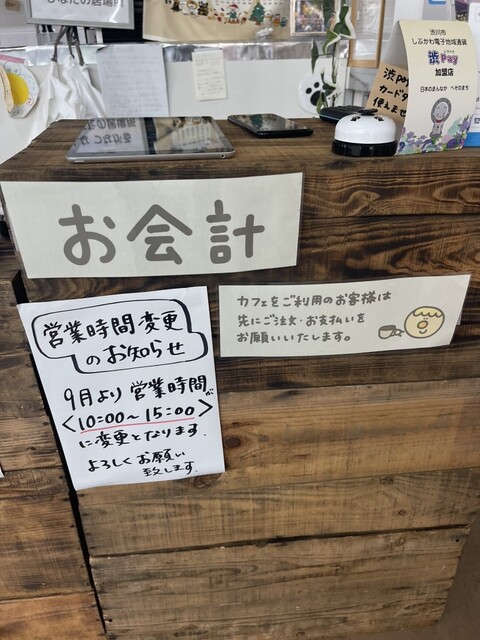 あなたの居場
渋川市
しぶかわ電子地域通貨
渋Pay
加盟店
日本のまんなか へそのまち
渋pay
カードタ
使えませ
お会計
カフェをご利用のお客様は
先にご注文・お支払いを
お願いいたします。
営業時間変更
のお知らせ
9月より 営業時間が
<10:00～15:00>
に変更となります.
よろしくお願い
致します.